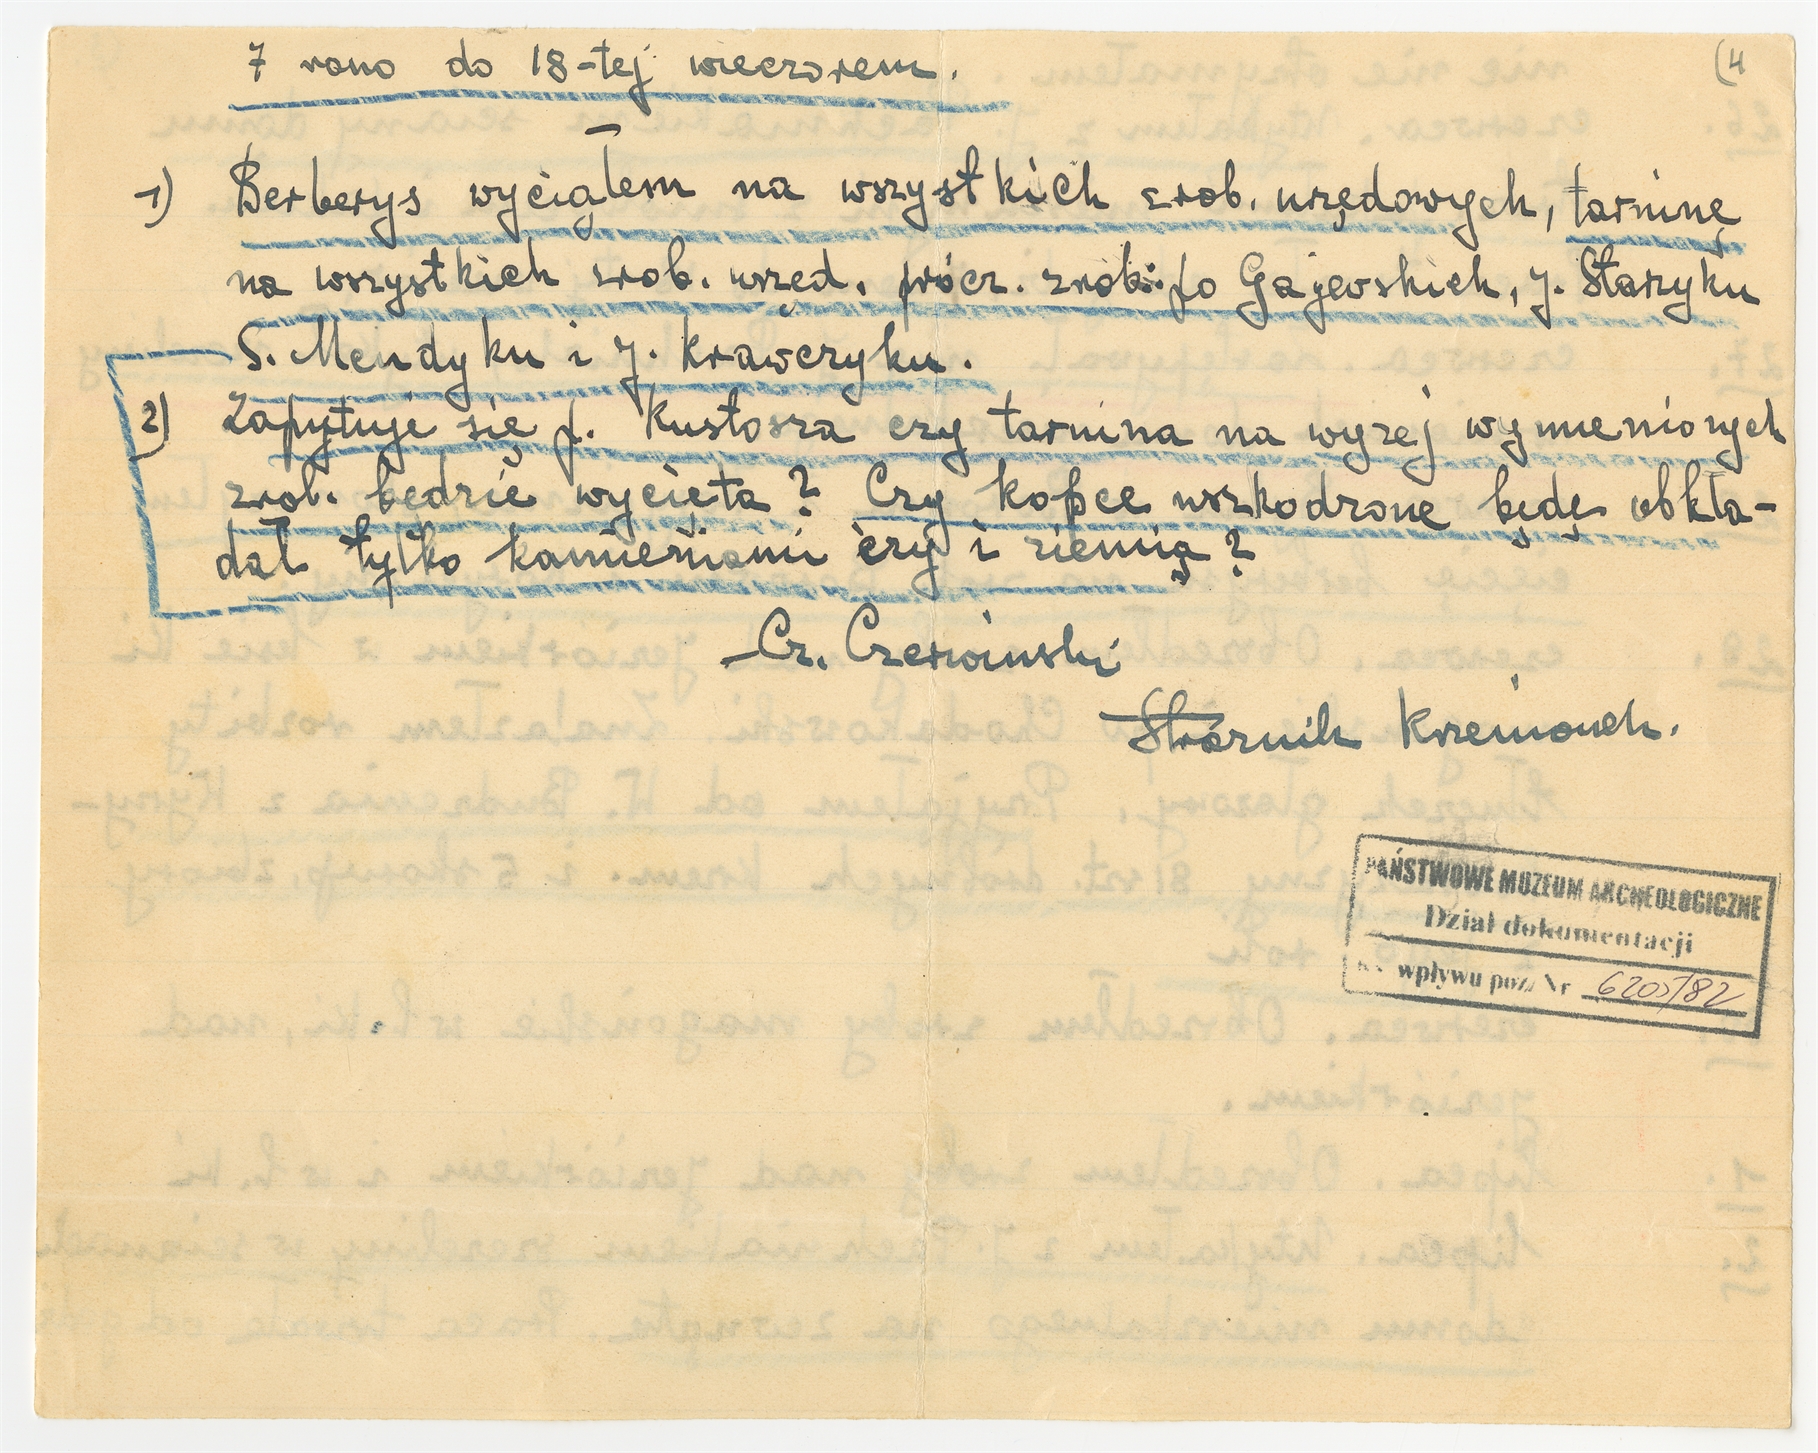 (4
7 rano do 18-tej wieczorem.
1) Berberys wyciąłem na wszystkich zrob. urzędowych, tarninę
na wszystkich zrob. urzęd. prócz. zrob: po Gajewskich, J. Staryku
S. Mendyku i J. Krawczyku.
2) Zapytuję się p. Kustosza czy tarnina na wyżej wymienionych
zrob. będzie wycięta? Czy kopce uszkodzone będę obkła-
dał tylko kamieniami czy i ziemią?
Cz. Czerwiński
Stróżnik Krzemionek.
PAŃSTWOWE MUZEUM ARCHEOLOGICZNE
Dział dokumentacji
wpływu poz. Nr 6205/82